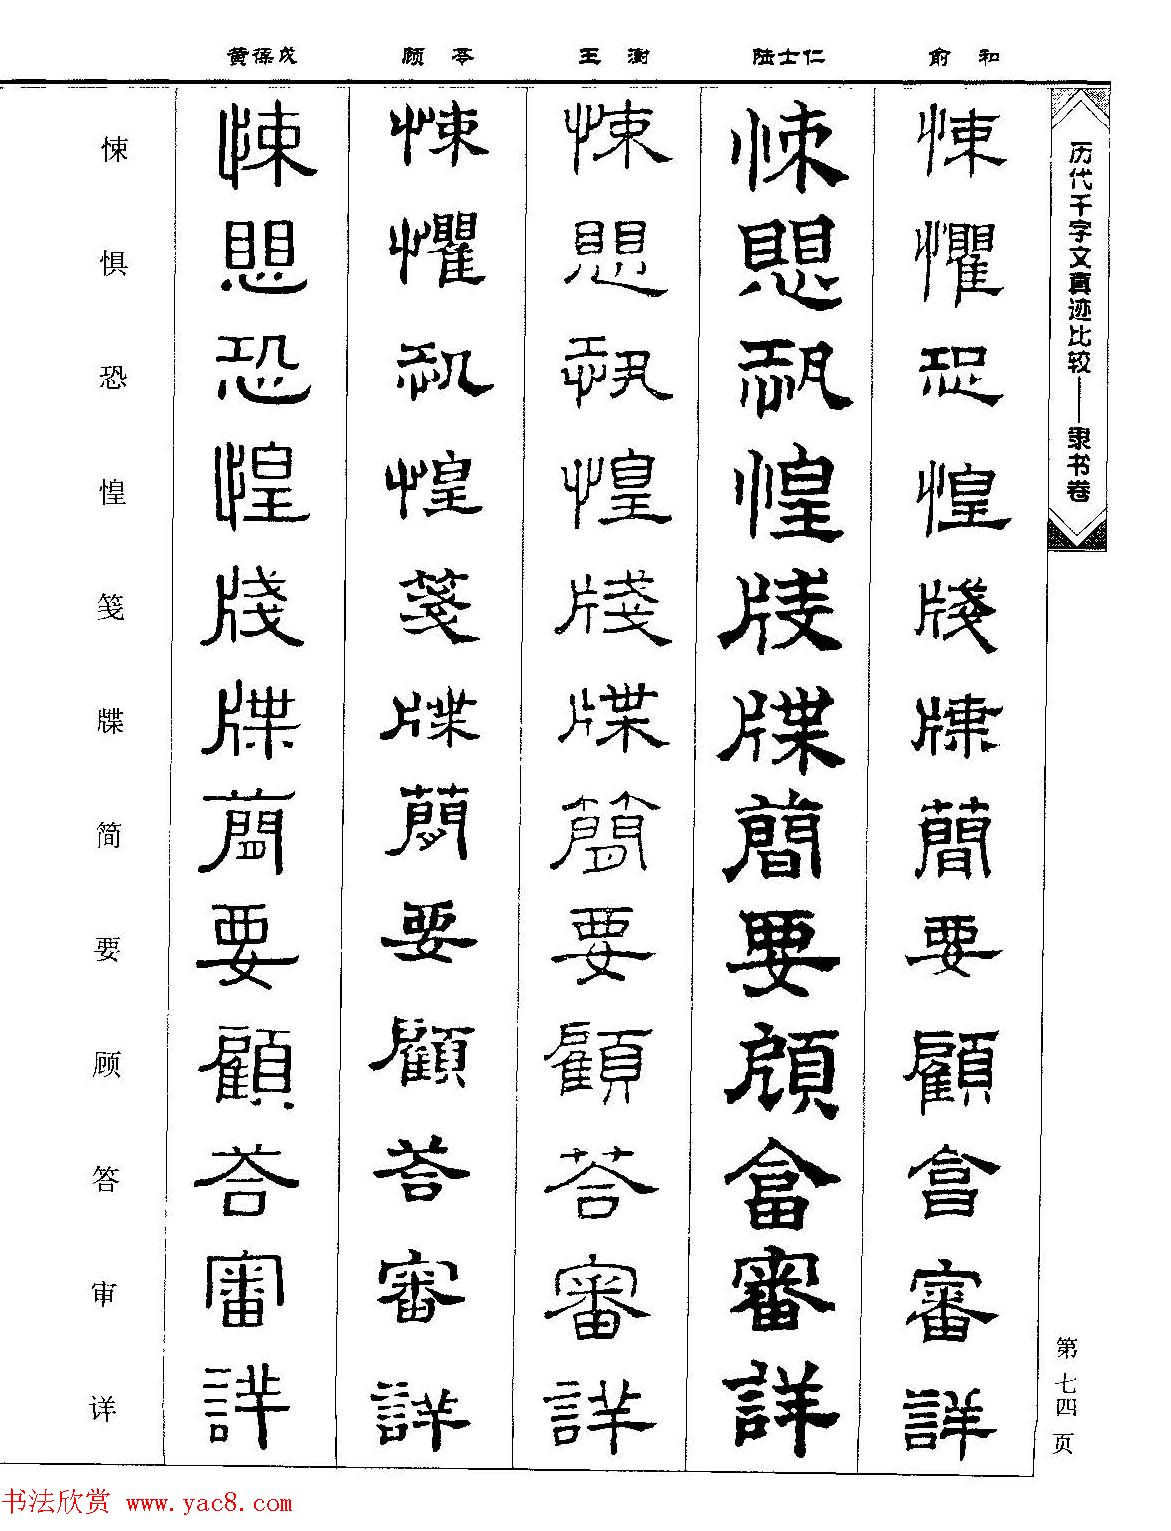 历代千字文真迹比较——隶书卷
第七四页
俞和
悚懼恐惶牋牒蕳要顧畣審詳
陆士仁
悚愳恐惶牋牒蕳要頋畣審詳
王澍
悚愳恐惶牋牒簡要顧荅審詳
顾苓
悚懼恐惶箋牒蕳要顧荅審詳
黄葆戉
悚愳恐惶牋牒蕳要顧荅審詳
悚惧恐惶笺牒简要顾答审详
书法欣赏 www.yac8.com